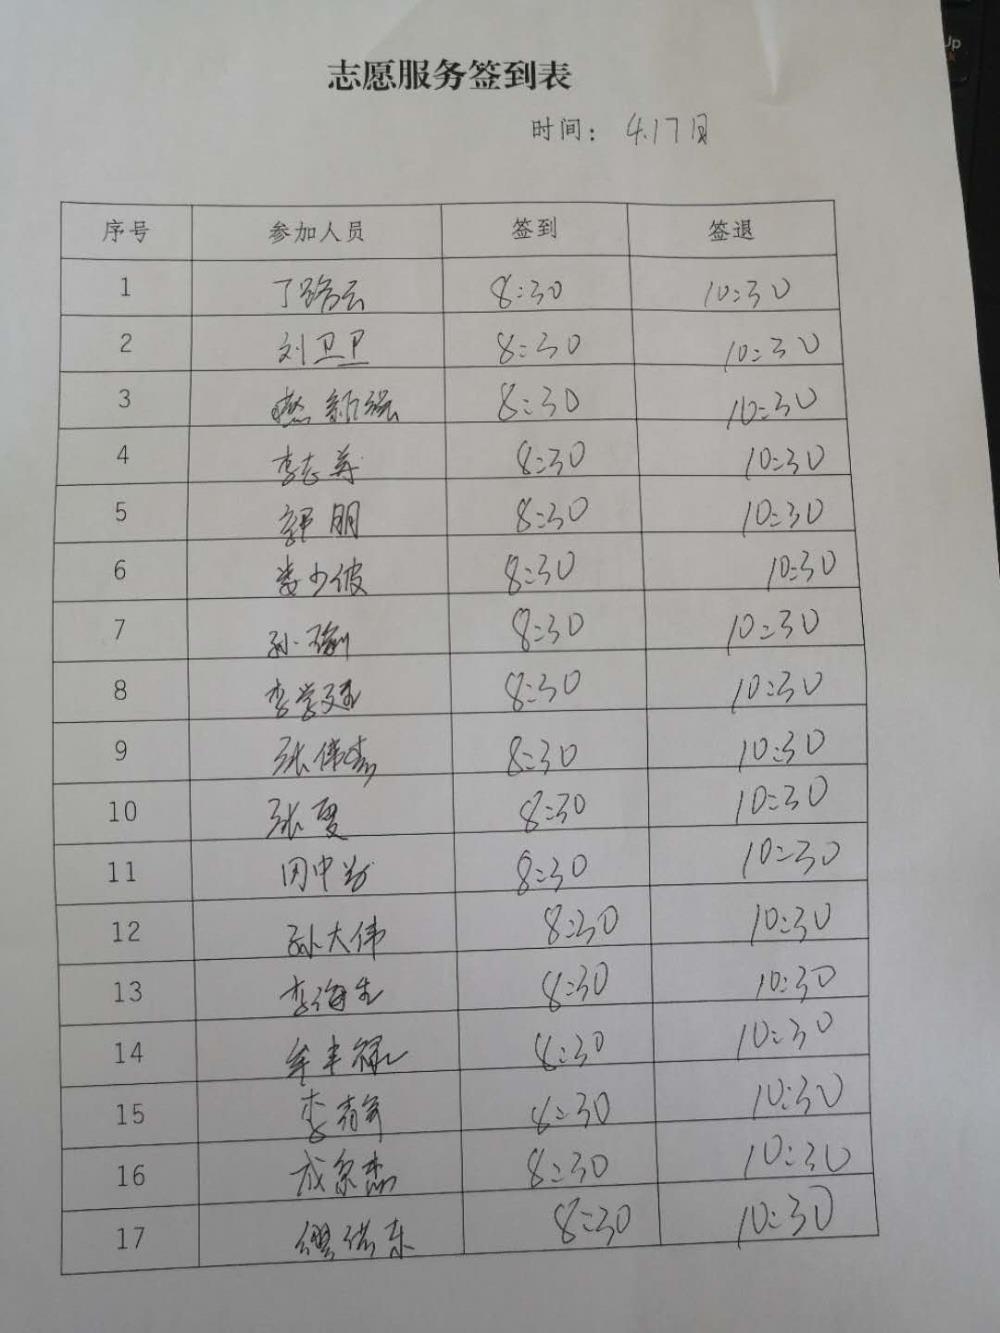 志愿服务签到表
时间： 4.17日
序号 参加人员 签到 签退
1 丁路云 8:30 10:30
2 刘卫卫 8:30 10:30
3 新强 8:30 10:30
4 李志 8:30 10:30
5 郭朋 8:30 10:30
6 娄少波 8:30 10:30
7 孙 8:30 10:30
8 李学 8:30 10:30
9 张伟 8:30 10:30
10 张夏 8:30 10:30
11 田中 8:30 10:30
12 孙大伟 8:30 10:30
13 李海生 8:30 10:30
14 牟丰禄 8:30 10:30
15 李 8:30 10:30
16 成 杰 8:30 10:30
17 东 8:30 10:30
Up